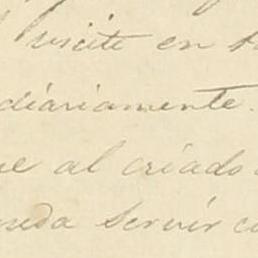 visite en
diariamente.
ue al criado
ueda servir co